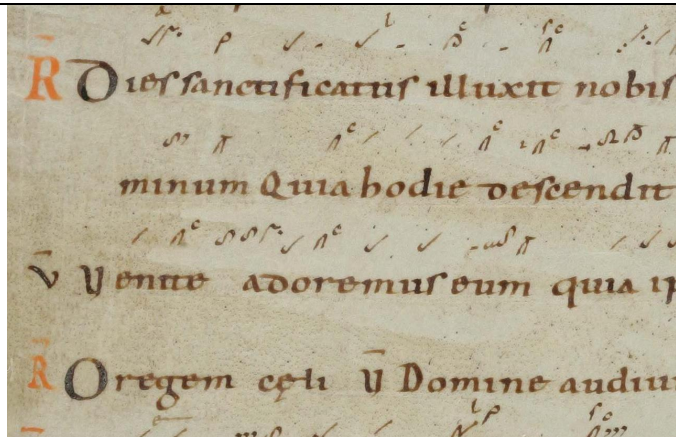 R Dies sanctificatus illuxit nobis
minum Quia hodie descendit
V Venite adoremus eum quia ip
R O regem cęli V Domine audiui